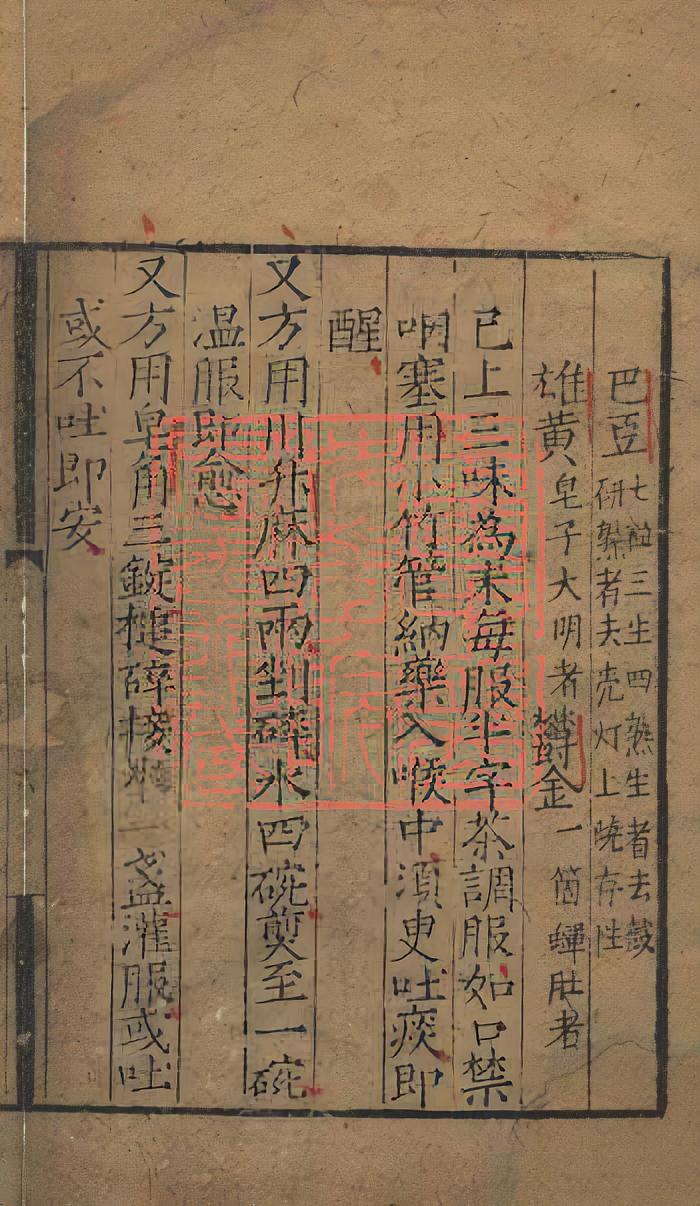 巴豆七粒三生四熟生者去殼
研熟者去壳灯上烧存性
雄黄皂子大明者鬱金一箇蟬肚者
已上三味為末每服半字茶調服如口禁
咽塞用小竹管納藥入喉中須臾吐痰即
醒
又方用川升麻四兩剉碎水四碗煎至一碗
温服即愈
又方用皂角三錠槌碎挼水一盞灌服或吐
或不吐即安